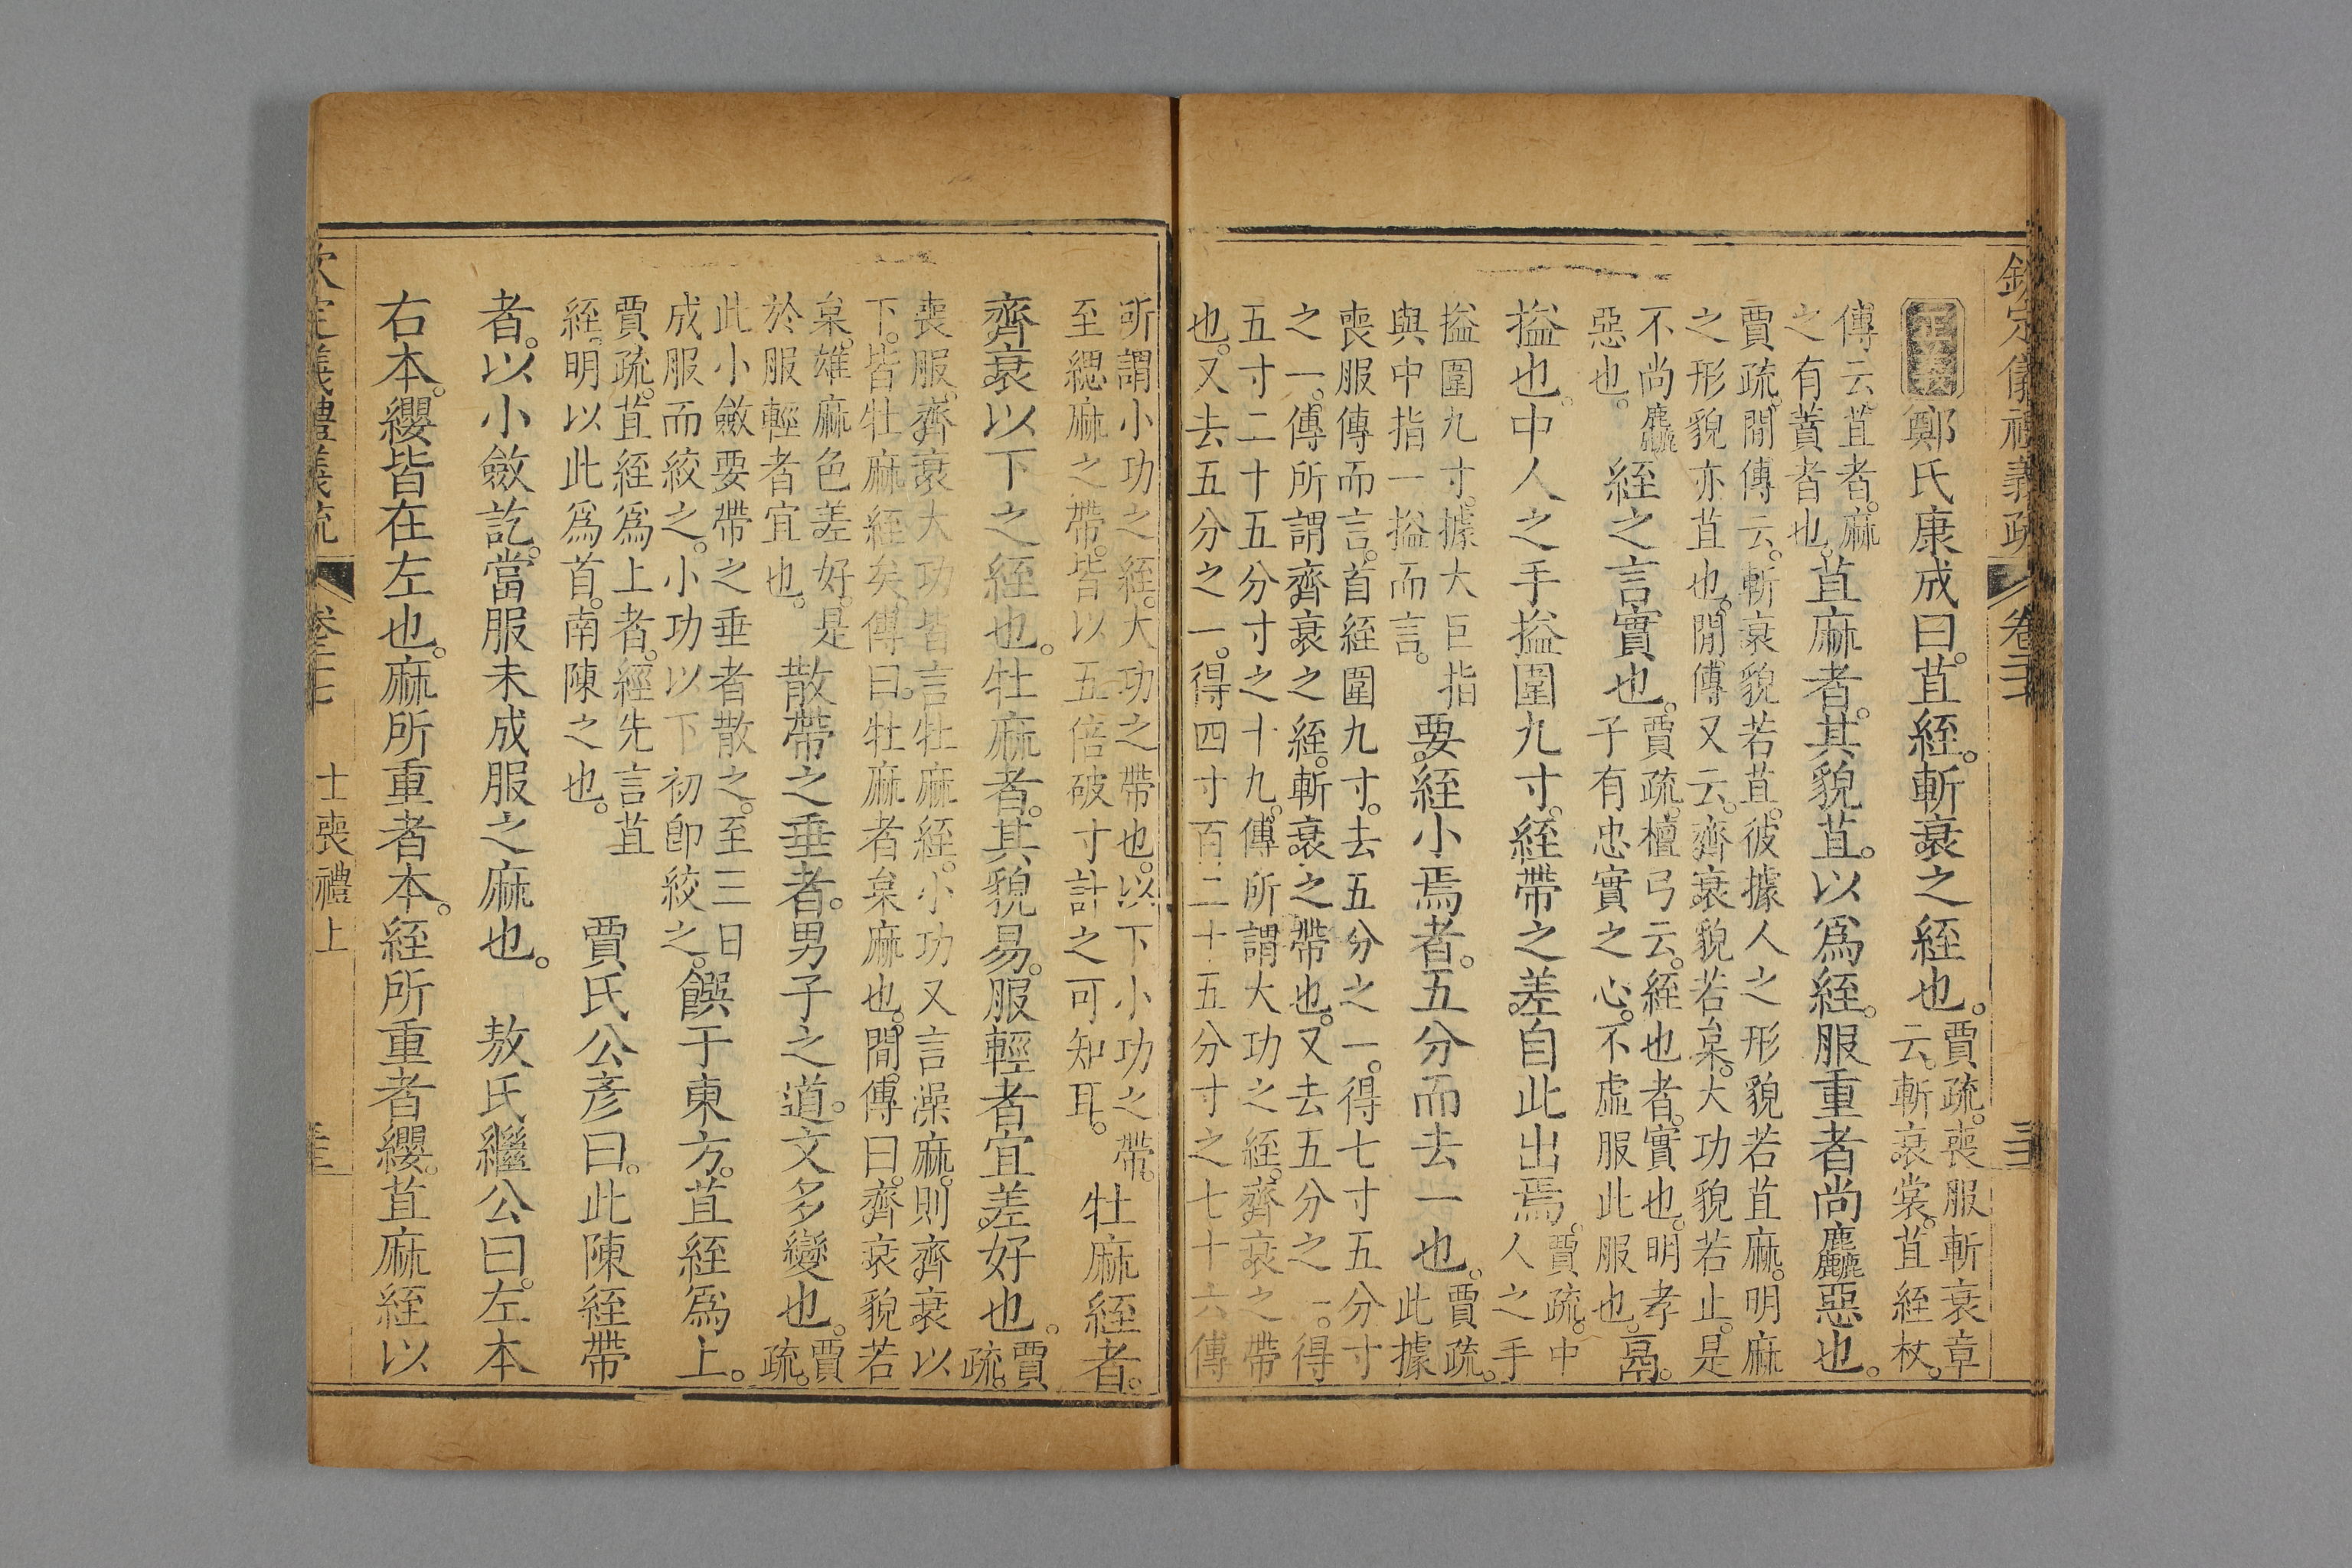 欽定儀禮義疏 卷二十七
正義鄭氏康成曰。苴絰。斬衰之絰也。賈疏。喪服斬衰章云。斬衰裳。苴絰杖。
傳云。苴者。麻之有蕡者也。苴麻者。其貌苴。以爲絰。服重者尚麤惡也。
賈疏。閒傳云。斬衰貌若苴。彼據人之形貌若苴麻。明麻
之形貌亦苴也。閒傳又云。齊衰貌若枲。大功貌若止。是
不尚麤惡也。絰之言實也。賈疏。檀弓云。絰也者。實也。明孝子有忠實之心。不虛服此服也。鬲。
搤也。中人之手搤圍九寸。絰帶之差。自此出焉。賈疏。中人之手
搤圍九寸。據大巨指與中指一搤而言。要絰小焉者。五分而去一也。賈疏。此據
喪服傳而言。首絰圍九寸。去五分之一。得七寸五分寸
之一。傳所謂齊衰之絰。斬衰之帶也。又去五分之一。得
五寸二十五分寸之十九。傳所謂大功之絰。齊衰之帶
也。又去五分之一。得四寸百二十五分寸之七十六傳
所謂小功之絰。大功之帶也。以下小功之帶。至緦麻之帶。皆以五倍破寸計之可知耳。牡麻絰者。
齊衰以下之絰也。牡麻者。其貌易。服輕者宜差好也。賈疏。
喪服。齊衰大功皆言牡麻絰。小功又言澡麻。則齊衰以
下。皆牡麻絰矣。傳曰。牡麻者枲麻也。閒傳曰。齊衰貌若
枲。雄麻色差好。是於服輕者宜也。散帶之垂者。男子之道。文多變也。賈疏。
此小斂要帶之垂者散之。至三日成服而絞之。小功以下初卽絞之。饌于東方。苴絰爲上。
賈疏。苴絰爲上者。經先言苴絰。明以此爲首。南陳之也。 賈氏公彥曰。此陳絰帶
者。以小斂訖。當服未成服之麻也。 敖氏繼公曰。左本
右本。纓皆在左也。麻所重者本。絰所重者纓。苴麻絰以
欽定儀禮義疏 卷二十七 士喪禮上